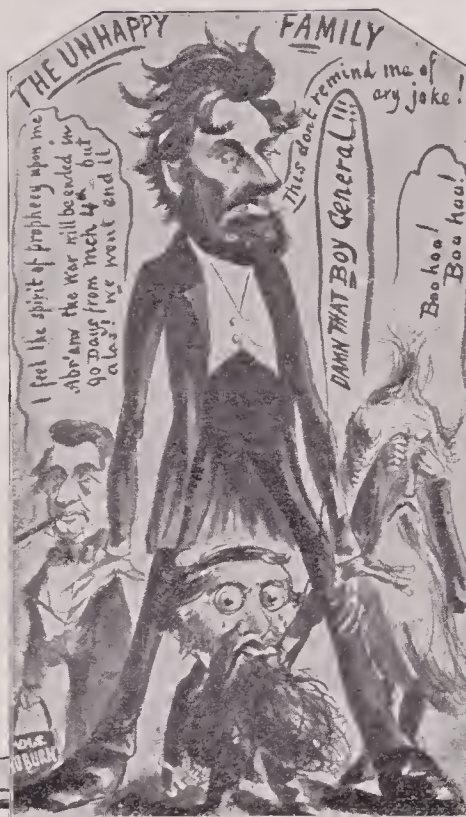 THE UNHAPPY FAMILY
I feel the spirit of prophecy upon me
Abr'am the War will be ended in
90 Days from Mch 4th but
alas! we wont end it
This dont remind me of
ary joke!
DAMN THAT BOY General!!!
Boo hoo!
Boo hoo!